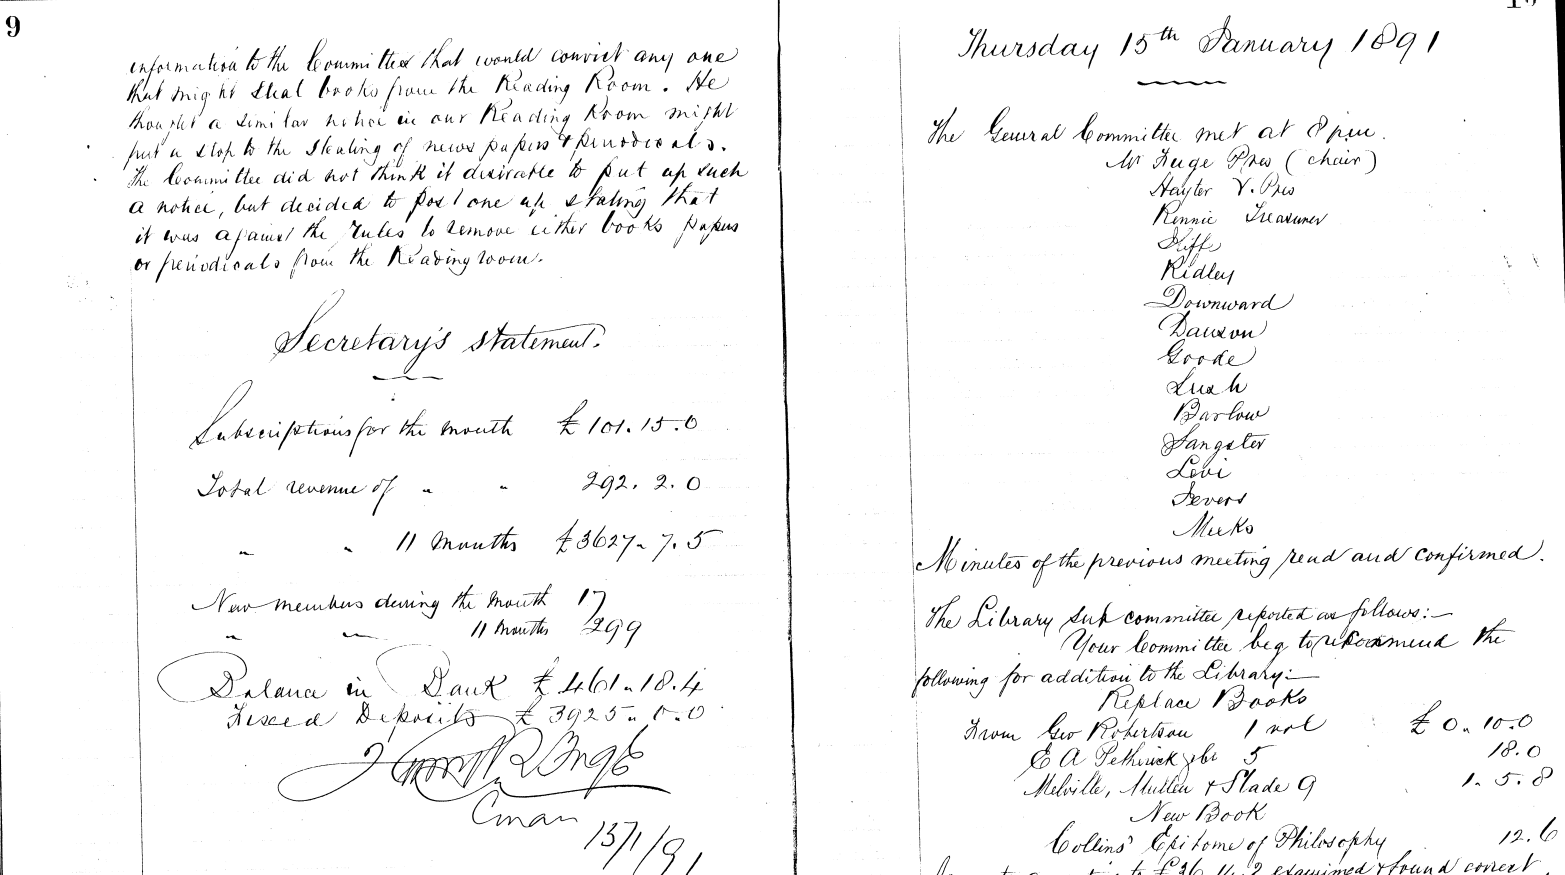 9
information to the Committee that would convict any one
that might steal books from the Reading Room. He
thought a similar notice in our Reading Room might
put a stop to the stealing of news papers & periodicals.
The Committee did not think it desirable to put up such
a notice, but decided to post one up stating that
it was against the rules to remove either books papers
or periodicals from the Reading room.
Secretary's statement.
Subscriptions for the month £101.15.0
Total revenue of " " 292.2.0
" " 11 months £3627.7.5
New members during the month 17
" " 11 months 299
Balance in Bank £461.18.4
Fixed Deposits £3925.0.0
Cman
15/1/91
Thursday 15th January 1891
The General Committee met at 8 pm.
Mr Fuge Pres (chair)
Hayter V. Pres
Rennie Treasurer
Iliffe
Ridley
Downward
Dawson
Goode
Lush
Barlow
Sangster
Levi
Severs
Meeks
Minutes of the previous meeting read and confirmed.
The Library sub committee reported as follows:-
Your Committee beg to recommend the
following for addition to the Library:-
Replace Books
From Geo Robertson 1 vol £0.10.0
E A Petherick &Co 5 18.0
Melville, Mullen & Slade 9 1.5.8
New Book
Collins' Epitome of Philosophy 12.6
to £36.14.2 examined & found correct.